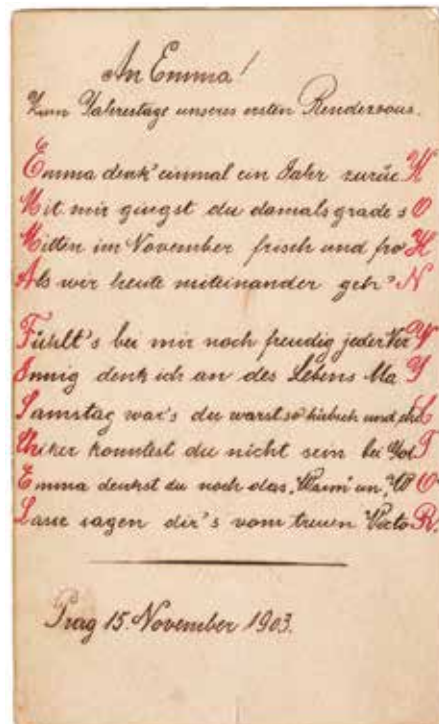 An Emma!
Zum Jahrestage unseres ersten Rendezvous.
Emma denk' einmal ein Jahr zurücK
Mit mir giengst du damals grade sO
Mitten im November frisch und froH
Als wir heute miteinander geh'N
Fühlt's bei mir noch freudig jeder NerV
Innig denk ich an des Lebens MaY
Samstag war's du warst so hübsch und chiK
Chiker konntest du nicht sein bei GotT
Emma denkst du noch das „Wann“ un „WO
Lasse sagen dir's vom treuen VictoR.
Prag 15. November 1903.